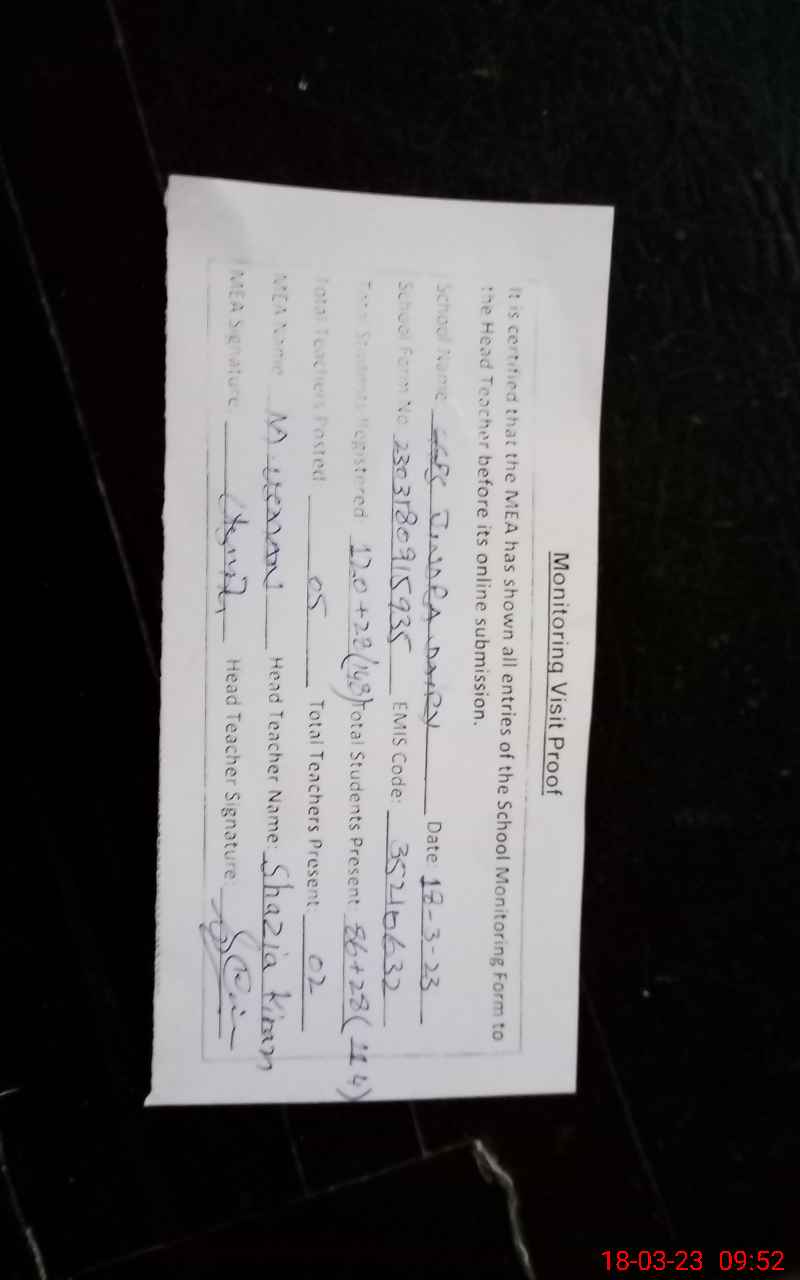 Monitoring Visit Proof
It is certified that the MEA has shown all entries of the School Monitoring Form to
the Head Teacher before its online submission.
School Name Date: 18-3-23
School Form No 2303180915935 EMIS Code: 35210632
Total Students Registered 120+28(148) Total Students Present: 86+28(114)
Total Teachers Posted 05 Total Teachers Present: 02
MEA Name M. Head Teacher Name: Shazia Kiran
MEA Signature: Head Teacher Signature:
18-03-23 09:52